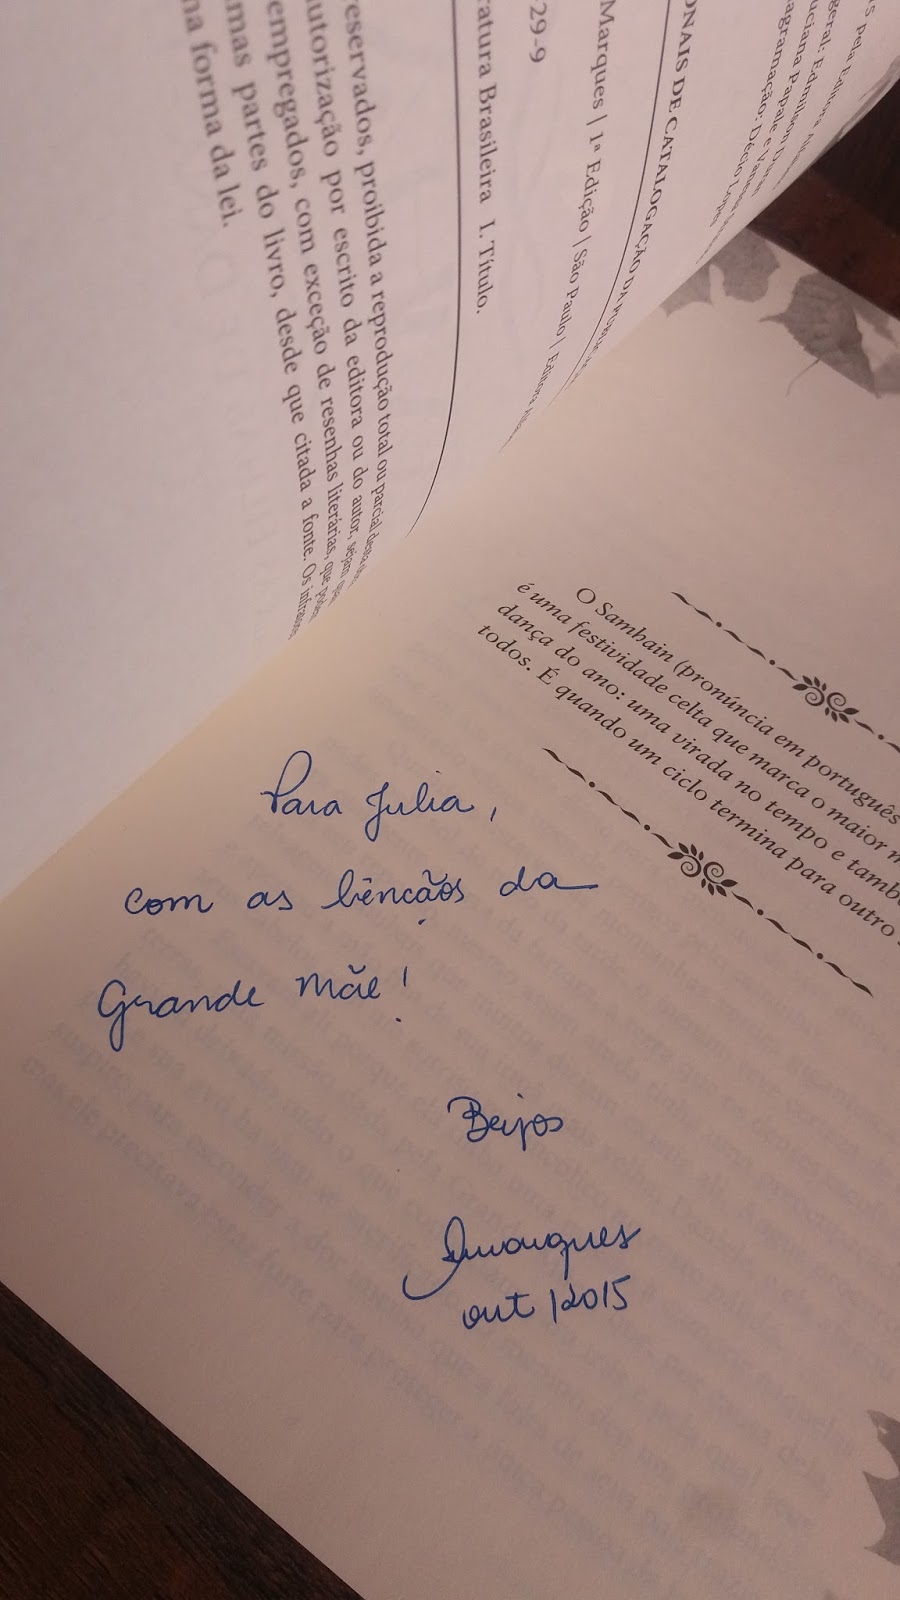 5 pela Editora
geral: Edmilson
uciana Papale e
agramação: Décio Lopes
ONAIS DE CATALOGAÇÃO DA
Marques | 1ª Edição | São Paulo | Editora
29-9
ratura Brasileira I. Título.
eservados, proibida a reprodução total ou parcial desta
utorização por escrito da editora ou do autor, sejam
empregados, com exceção de resenhas literárias, que
mas partes do livro, desde que citada a fonte. Os infratores
na forma da lei.
O Samhain (pronúncia em português
é uma festividade celta que marca o maior
dança do ano: uma virada no tempo e tamb
todos. É quando um ciclo termina para outro
Para Julia,
com as bênçãos da
Grande Mãe!
Beijos
out/2015